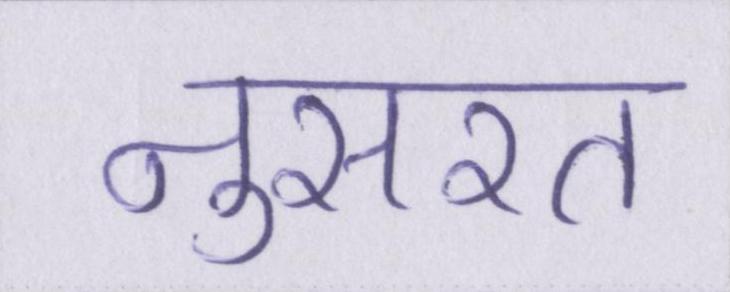 नुसरत